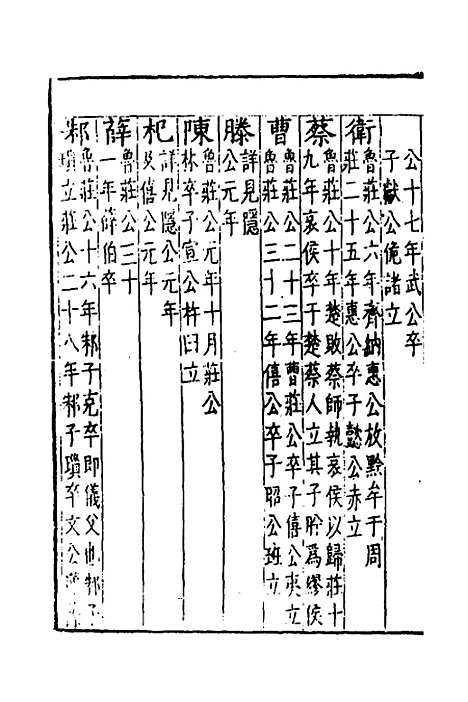 公十七年武公卒
子獻公佹諸立
衛
魯莊公六年齊納惠公放黔牟于周
莊二十五年惠公卒子懿公赤立
蔡
魯莊公十年楚敗蔡師執哀侯以歸莊十
九年哀侯卒于楚蔡人立其子肸爲繆侯
曹
魯莊公二十三年曹莊公卒子僖公夷立
魯莊公三十二年僖公卒子昭公班立
滕
詳見隱
公元年
陳
魯莊公元年十月莊公
林卒子宣公杵臼立
杞
詳見隱公元年
及僖公元年
薛
魯莊公三十
一年薛伯卒
邾
魯莊公十六年邾子克卒即儀父也邾子
瑣立莊公二十八年邾子瑣卒文公